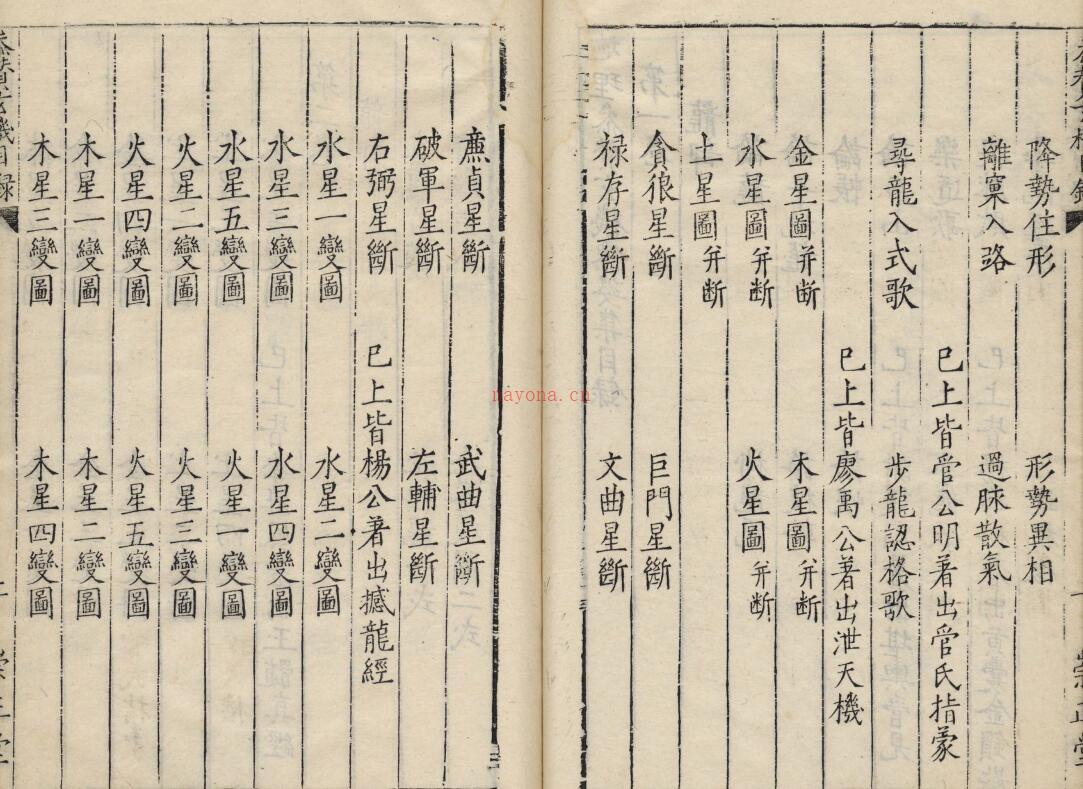 降勢住形 形勢異相
離窠入路 過脉散氣
巳上皆管公明著出管氏指蒙
尋龍入式歌 步龍認格歌
巳上皆廖禹公著出泄天機
金星圖并断 木星圖并断
水星圖并断 火星圖并断
土星圖并断
貪狼星斷 巨門星斷
禄存星斷 文曲星斷
廉貞星斷 武曲星斷
破軍星斷 左輔星斷
右弼星斷 巳上皆楊公著出撼龍經
水星一變圖 水星二變圖
水星三變圖 水星四變圖
水星五變圖 火星一變圖
火星二變圖 火星三變圖
火星四變圖 火星五變圖
木星一變圖 木星二變圖
木星三變圖 木星四變圖
nayona.cn